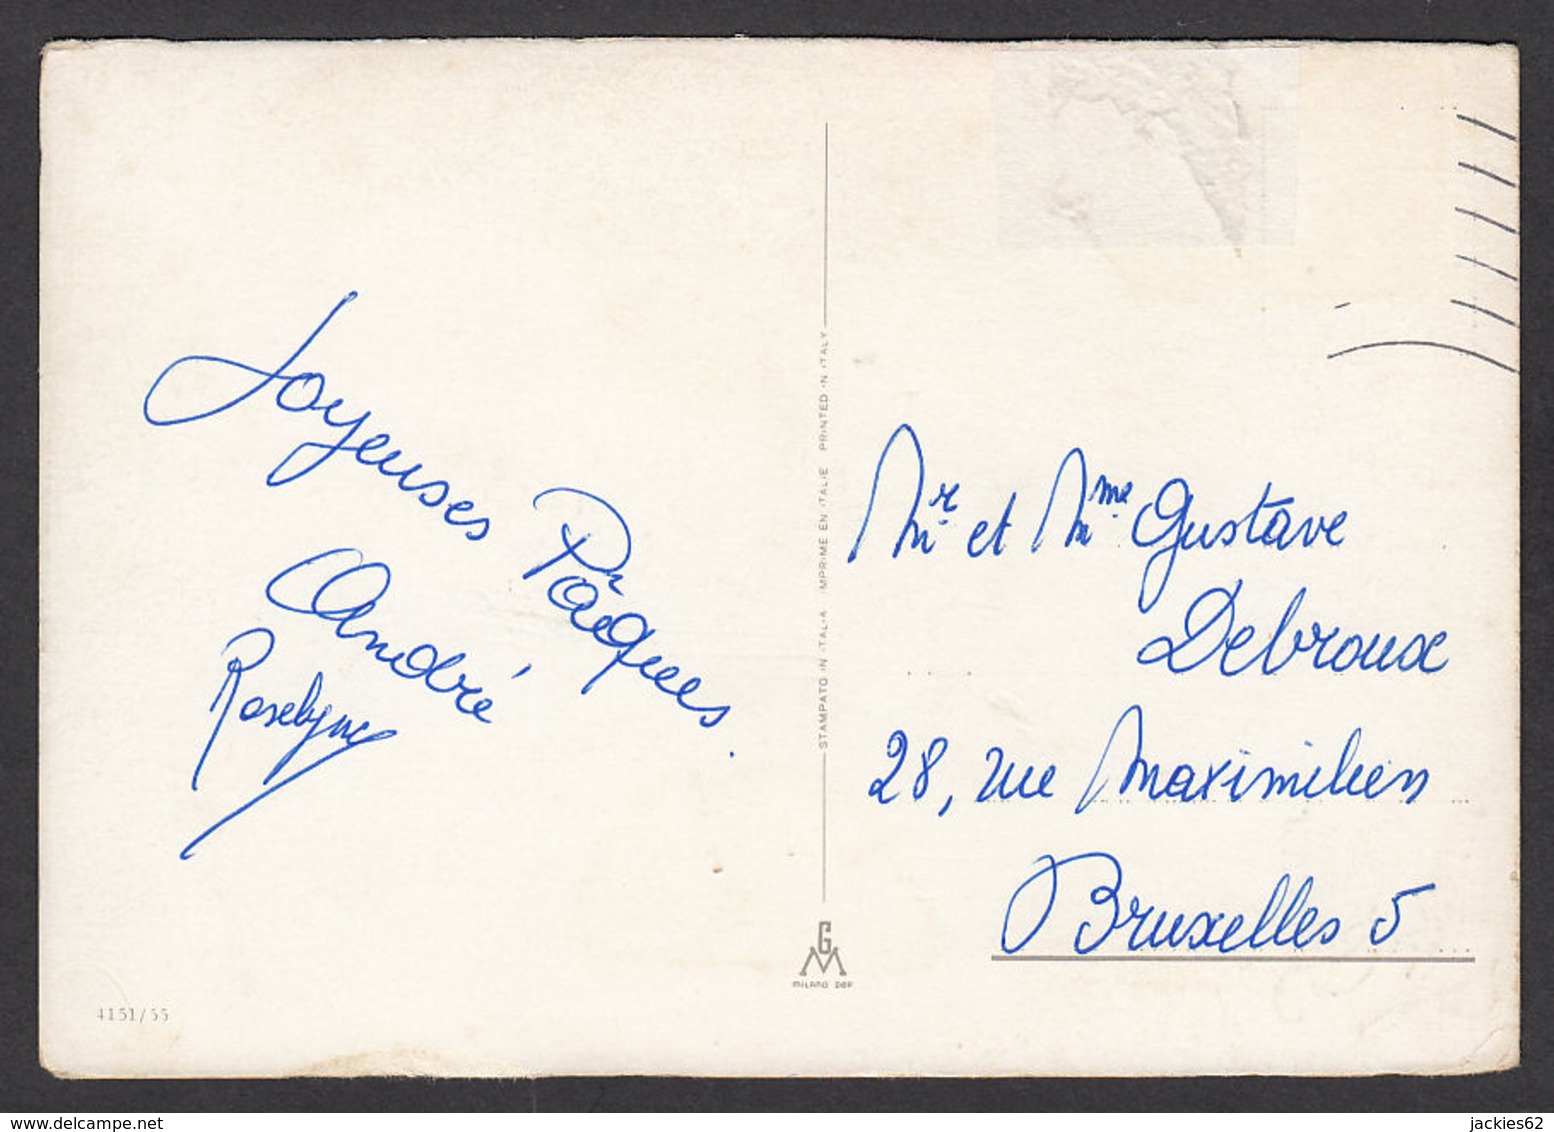 Joyeuses Pâques.
André
Roselyne
STAMPATO IN ITALIA IMPRIME EN ITALIE PRINTED IN ITALY
Mr. et Mme. Gustave
Debroux
28, rue Maximilien
Bruxelles 5
GM
MILANO DEP
4151/55
delcampe.net
jackies62